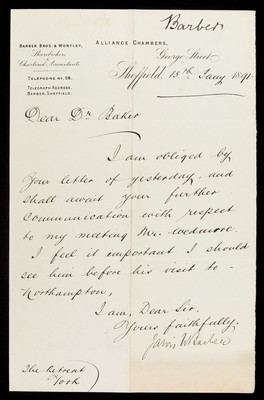 Barber
BARBER BROS. & WORTLEY,
Sharebrokers
Chartered Accountants
TELEPHONE No. 58.
TELEGRAPH ADDRESS.
BARBER, SHEFFIELD.
ALLIANCE CHAMBERS,
George Street
Sheffield 15th Jany 1891.
Dear Dr Baker
I am obliged by
Your letter of yesterday, and
shall await your further
Communication with respect
to my meeting Mr. Wedmore.
I feel it important I should
see him before his visit to
Northampton,
I am, Dear Sir.
Yours faithfully.
Jarvis W Barber
The Retreat
York